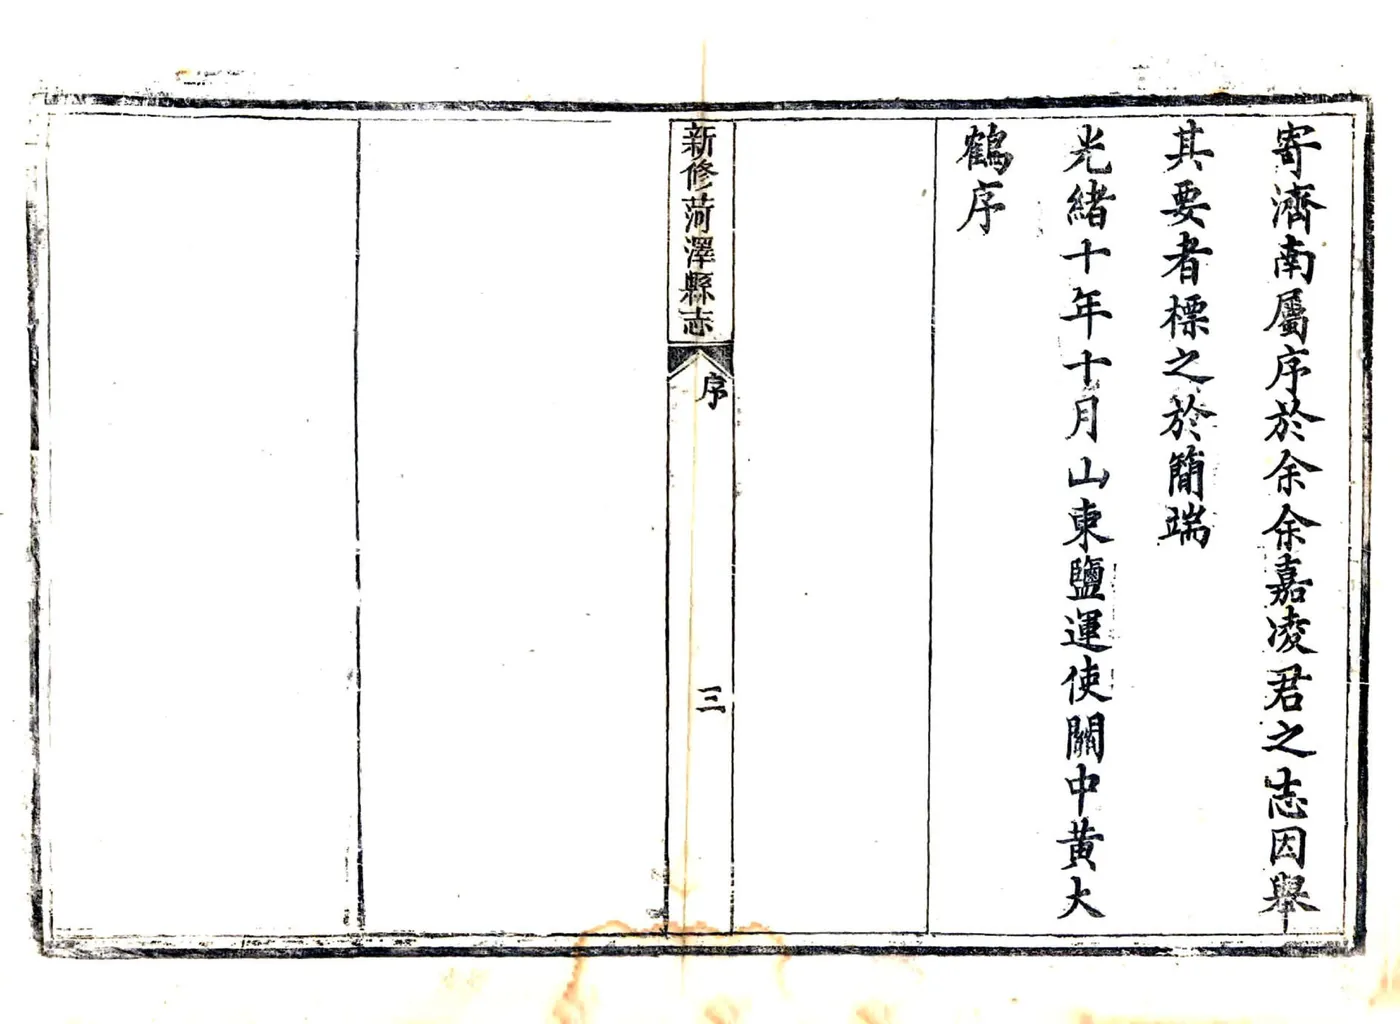 寄濟南屬序於余余嘉凌君之志因舉
其要者標之於簡端
光緒十年十月山東鹽運使關中黃大
鶴序
新修菏澤縣志
序
三